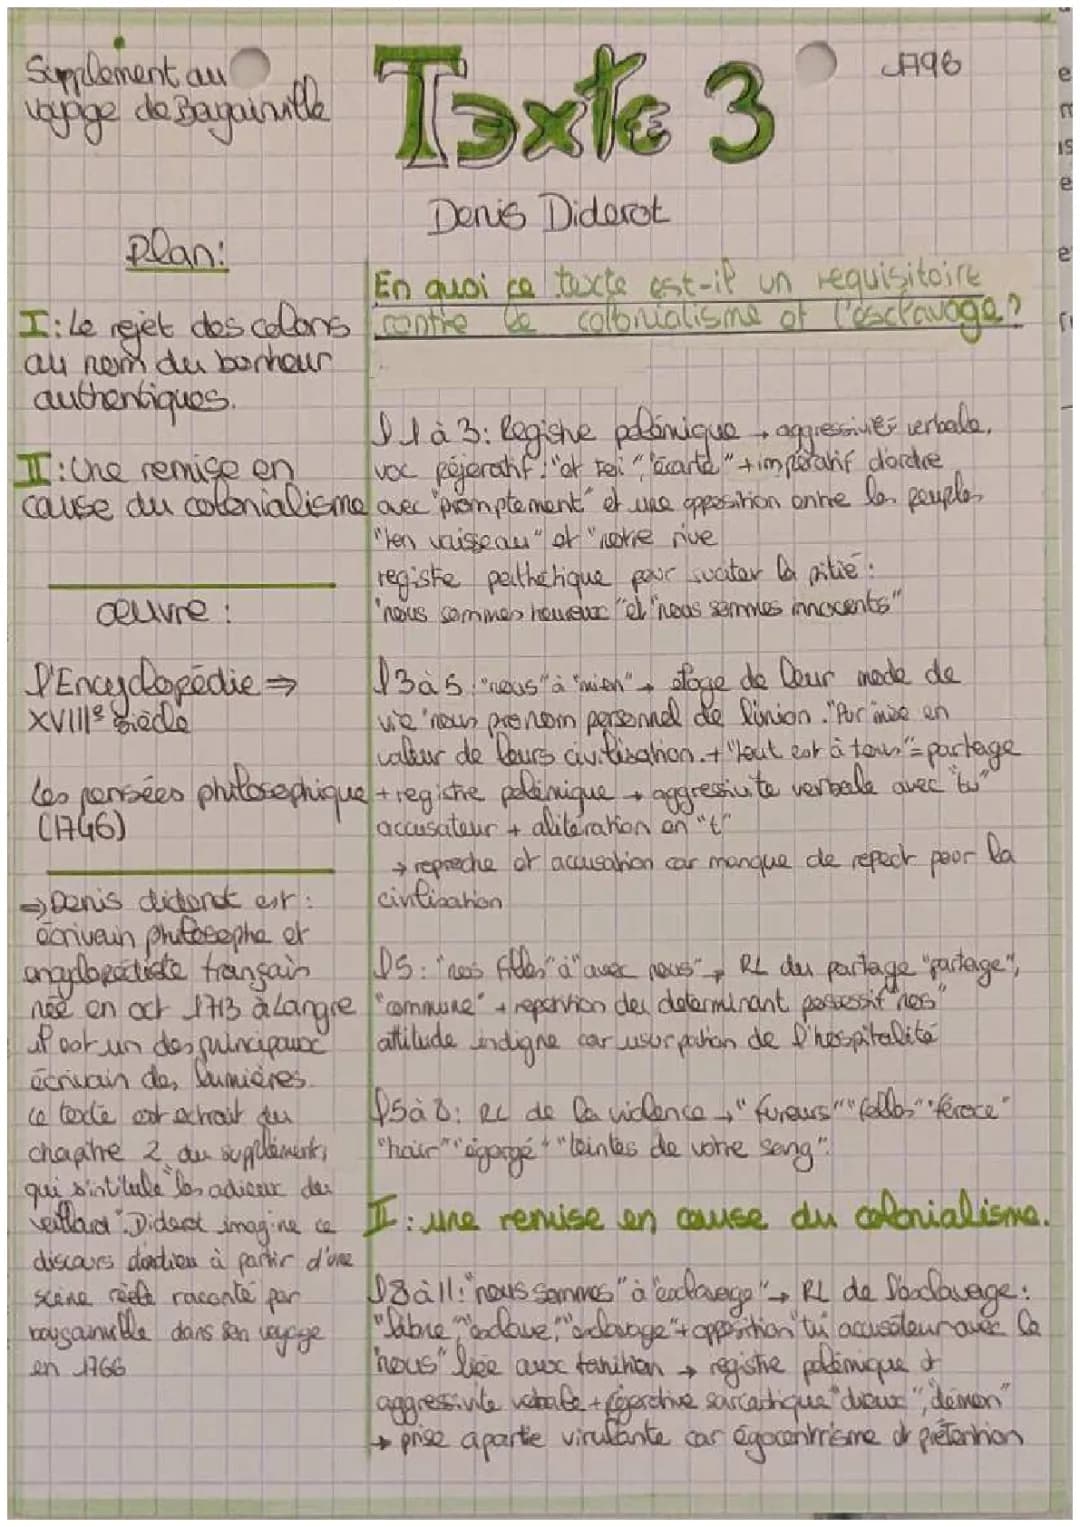 Supplément au
voyage de Bagainville
Texte 3
1796
Denis Diderot
Plan:
I: Le rejet des colons
au nom du bonheur
authentiques.
II: Une remise en
cause du colonialisme
œuvre :
l'Encyclopédie ⇒
XVIII° siècle
Les pensées philosophique
(1746)
⇒ Denis diderot est :
écrivain philosophe et
encyclopédiste français
née en oct 1713 à Langre
il est un des principaux
écrivain des lumières.
ce texte est extrait du
chapitre 2 du suppléments,
qui s'intitule "les adieux du
veillard". Diderot imagine ce
discours à partir d'une
scène réelle raconté par
bougainville dans son voyage
en 1766
En quoi ce texte est-il un requisitoire
contre le colonialisme et l'esclavage?
l 1 à 3: Registre polémique → aggressivité verbale,
voc péjoratif : "et toi" "écarte" + impératif d'ordre
avec "promptement" et une opposition entre les peuples
"ton vaisseau" et "notre rive
registre pathétique pour suciter la pitié :
"nous sommes heureux" et "nous sommes innocents"
l 3 à 5 : "nous" à "mien" → éloge de leur mode de
vie "nous pronom personnel de l'union. "Pur mise en
valeur de leurs civilisation. + "tout est à tous" = partage
+ registre polémique → aggressivité verbale avec "tu"
accusateur + alitération en "t"
→ reproche et accusation car manque de repect pour la
civilisation
l 5 : "nos filles" à "avec nous" → RL du partage "partage",
"commune" + repetition du determinant possessif "nos"
attitude indigne car usurpation de l'hospitalité
l 5 à 8 : RL de la violence → "fureurs" "folles" "féroce"
"haïr" "égorgé" + "teintes de votre sang".
II : une remise en cause du colonialisme.
l 8 à 11 : "nous sommes" à "esclavage" → RL de l'esclavage :
"libre", "esclave", "esclavage" + opposition "tu" accusateur avec le
"nous" liée aux tahitien → registre polémique et
aggressivité verbale + péjorative sarcastique "dieux", "démon"
→ prise à partie virulante car égocentrisme et prétention